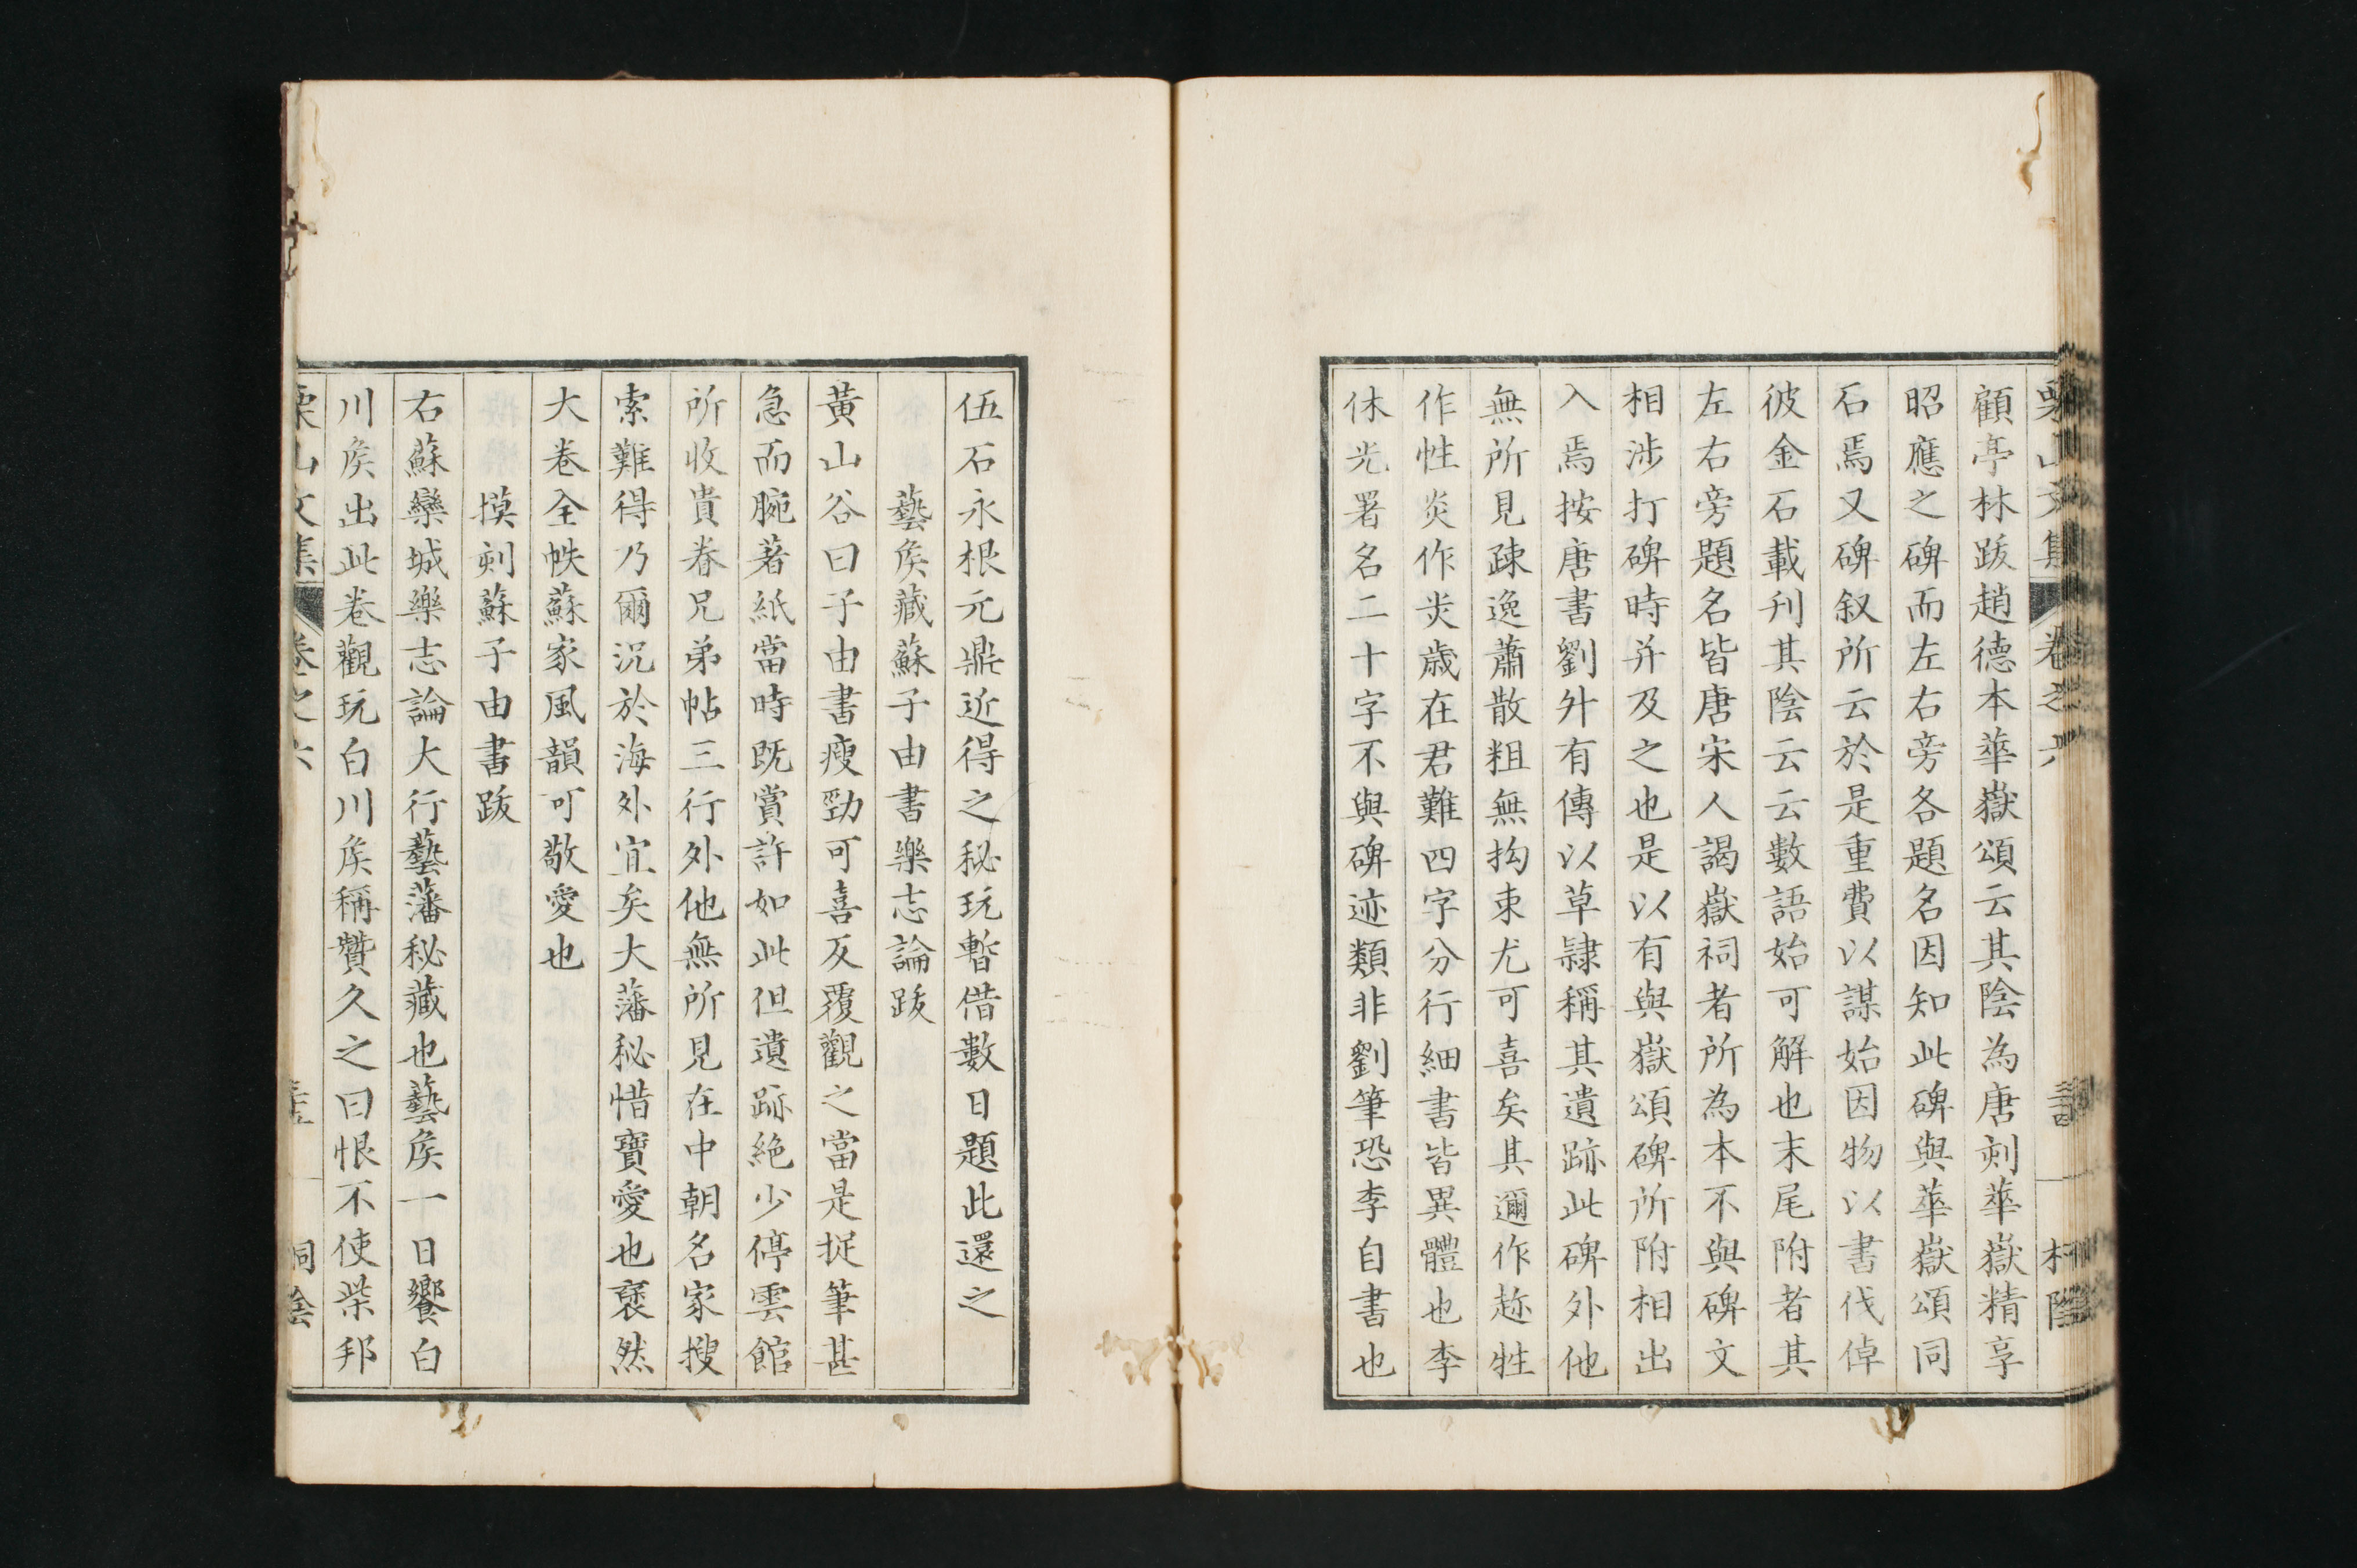 栗山文集 卷之六 三十四 桐陰
顧亭林跋趙德本華嶽頌云其陰為唐刻華嶽精享
昭應之碑而左右旁各題名因知此碑與華嶽頌同
石焉又碑叙所云於是重費以謀始因物以書伐倬
彼金石載刊其陰云云數語始可解也末尾附者其
左右旁題名皆唐宋人謁嶽祠者所為本不與碑文
相涉打碑時并及之也是以有與嶽頌碑所附相出
入焉按唐書劉升有傳以草隸稱其遺跡此碑外他
無所見疎逸蕭散粗無拘束尤可喜矣其邇作迩牲
作性炎作㷋歲在君難四字分行細書皆異體也李
休光署名二十字不與碑迹類非劉筆恐李自書也
伍石永根元鼎近得之秘玩暫借數日題此還之
藝侯藏蘇子由書樂志論跋
黃山谷曰子由書瘦勁可喜反覆觀之當是捉筆甚
急而腕著紙當時既賞許如此但遺跡絕少停雲館
所收貴眷兄弟帖三行外他無所見在中朝名家搜
索難得乃爾況於海外宜矣大藩秘惜寶愛也褎然
大卷全帙蘇家風韻可敬愛也
摸刻蘇子由書跋
右蘇欒城樂志論大行藝藩秘藏也藝侯一日饗白
川侯出此卷觀玩白川侯稱贊久之曰恨不使柴邦
栗山文集 卷之六 三十五 桐陰